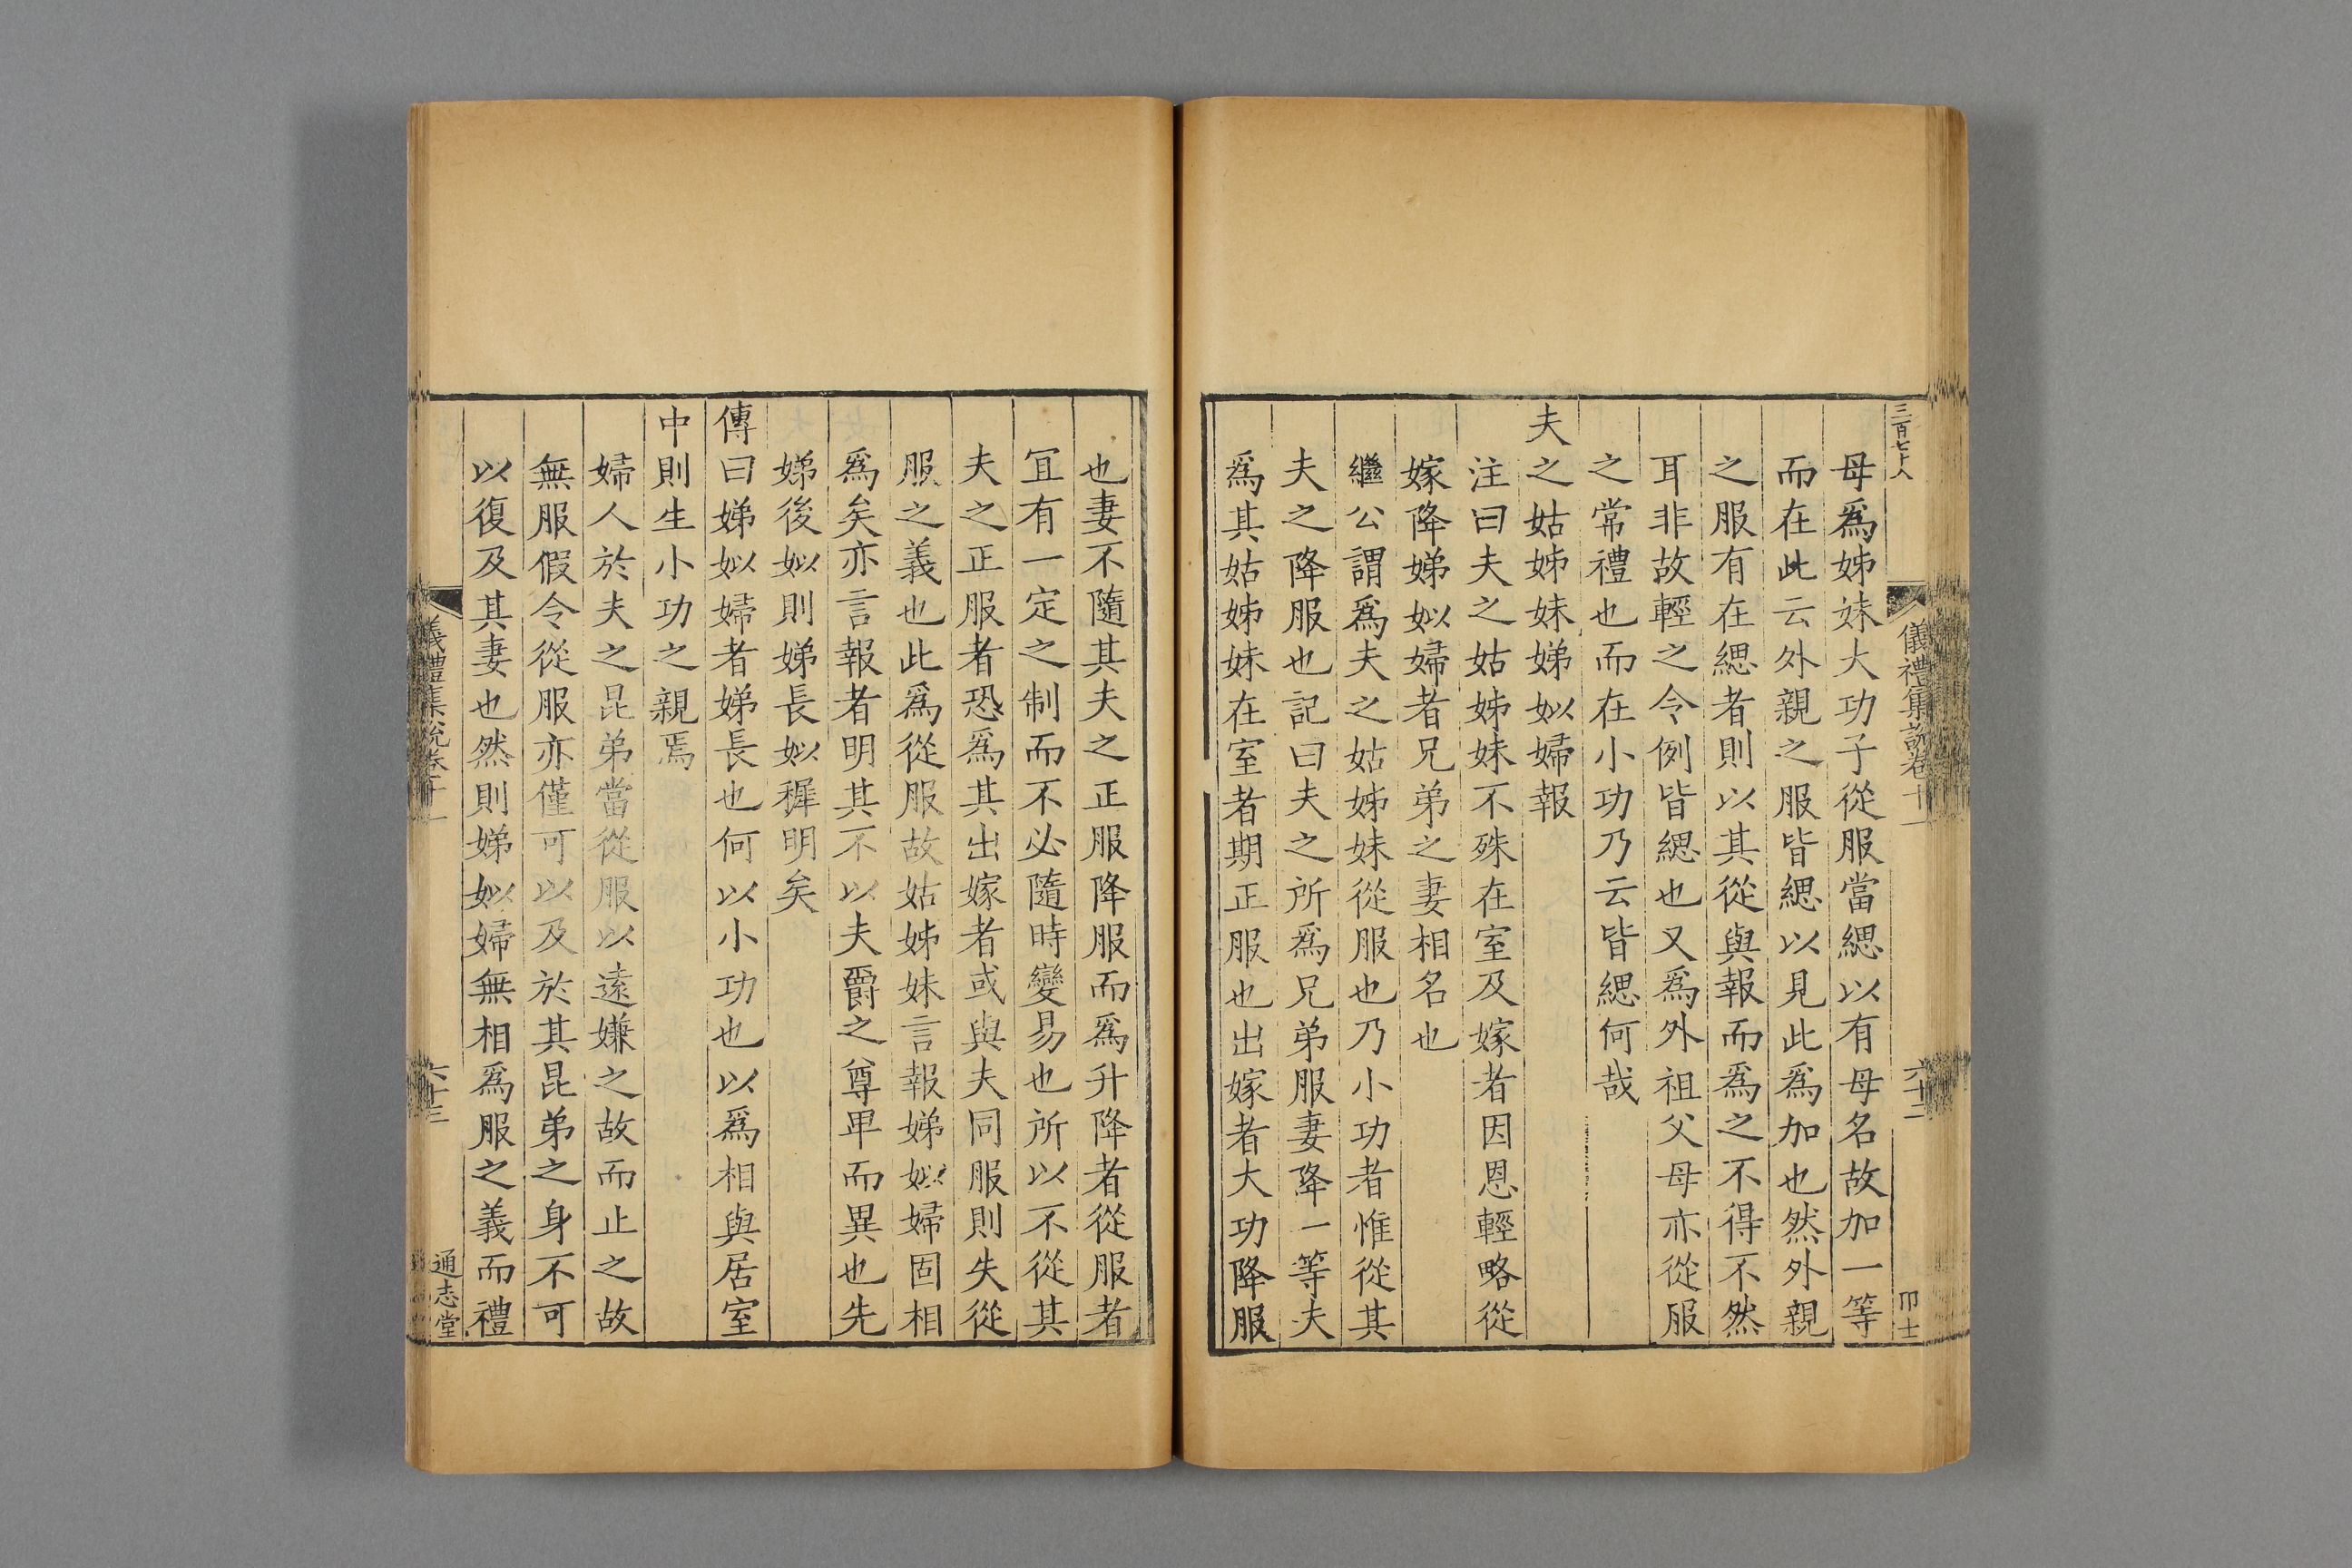 三百七十八
儀禮集說卷十一
六十二
卩士
母爲姊妹大功子從服當緦以有母名故加一等
而在此云外親之服皆緦以見此爲加也然外親
之服有在緦者則以其從與報而爲之不得不然
耳非故輕之令例皆緦也又爲外祖父母亦從服
之常禮也而在小功乃云皆緦何哉
夫之姑姊妹娣姒婦報
注曰夫之姑姊妹不殊在室及嫁者因恩輕略從
嫁降娣姒婦者兄弟之妻相名也
繼公謂爲夫之姑姊妹從服也乃小功者惟從其
夫之降服也記曰夫之所爲兄弟服妻降一等夫
爲其姑姊妹在室者期正服也出嫁者大功降服
也妻不隨其夫之正服降服而爲升降者從服者
宜有一定之制而不必隨時變易也所以不從其
夫之正服者恐爲其出嫁者或與夫同服則失從
服之義也此爲從服故姑姊妹言報娣姒婦固相
爲矣亦言報者明其不以夫爵之尊卑而異也先
娣後姒則娣長姒穉明矣
傳曰娣姒婦者娣長也何以小功也以爲相與居室
中則生小功之親焉
婦人於夫之昆弟當從服以遠嫌之故而止之故
無服假令從服亦僅可以及於其昆弟之身不可
以復及其妻也然則娣姒婦無相爲服之義而禮
儀禮集說卷十一
六十三
通志堂